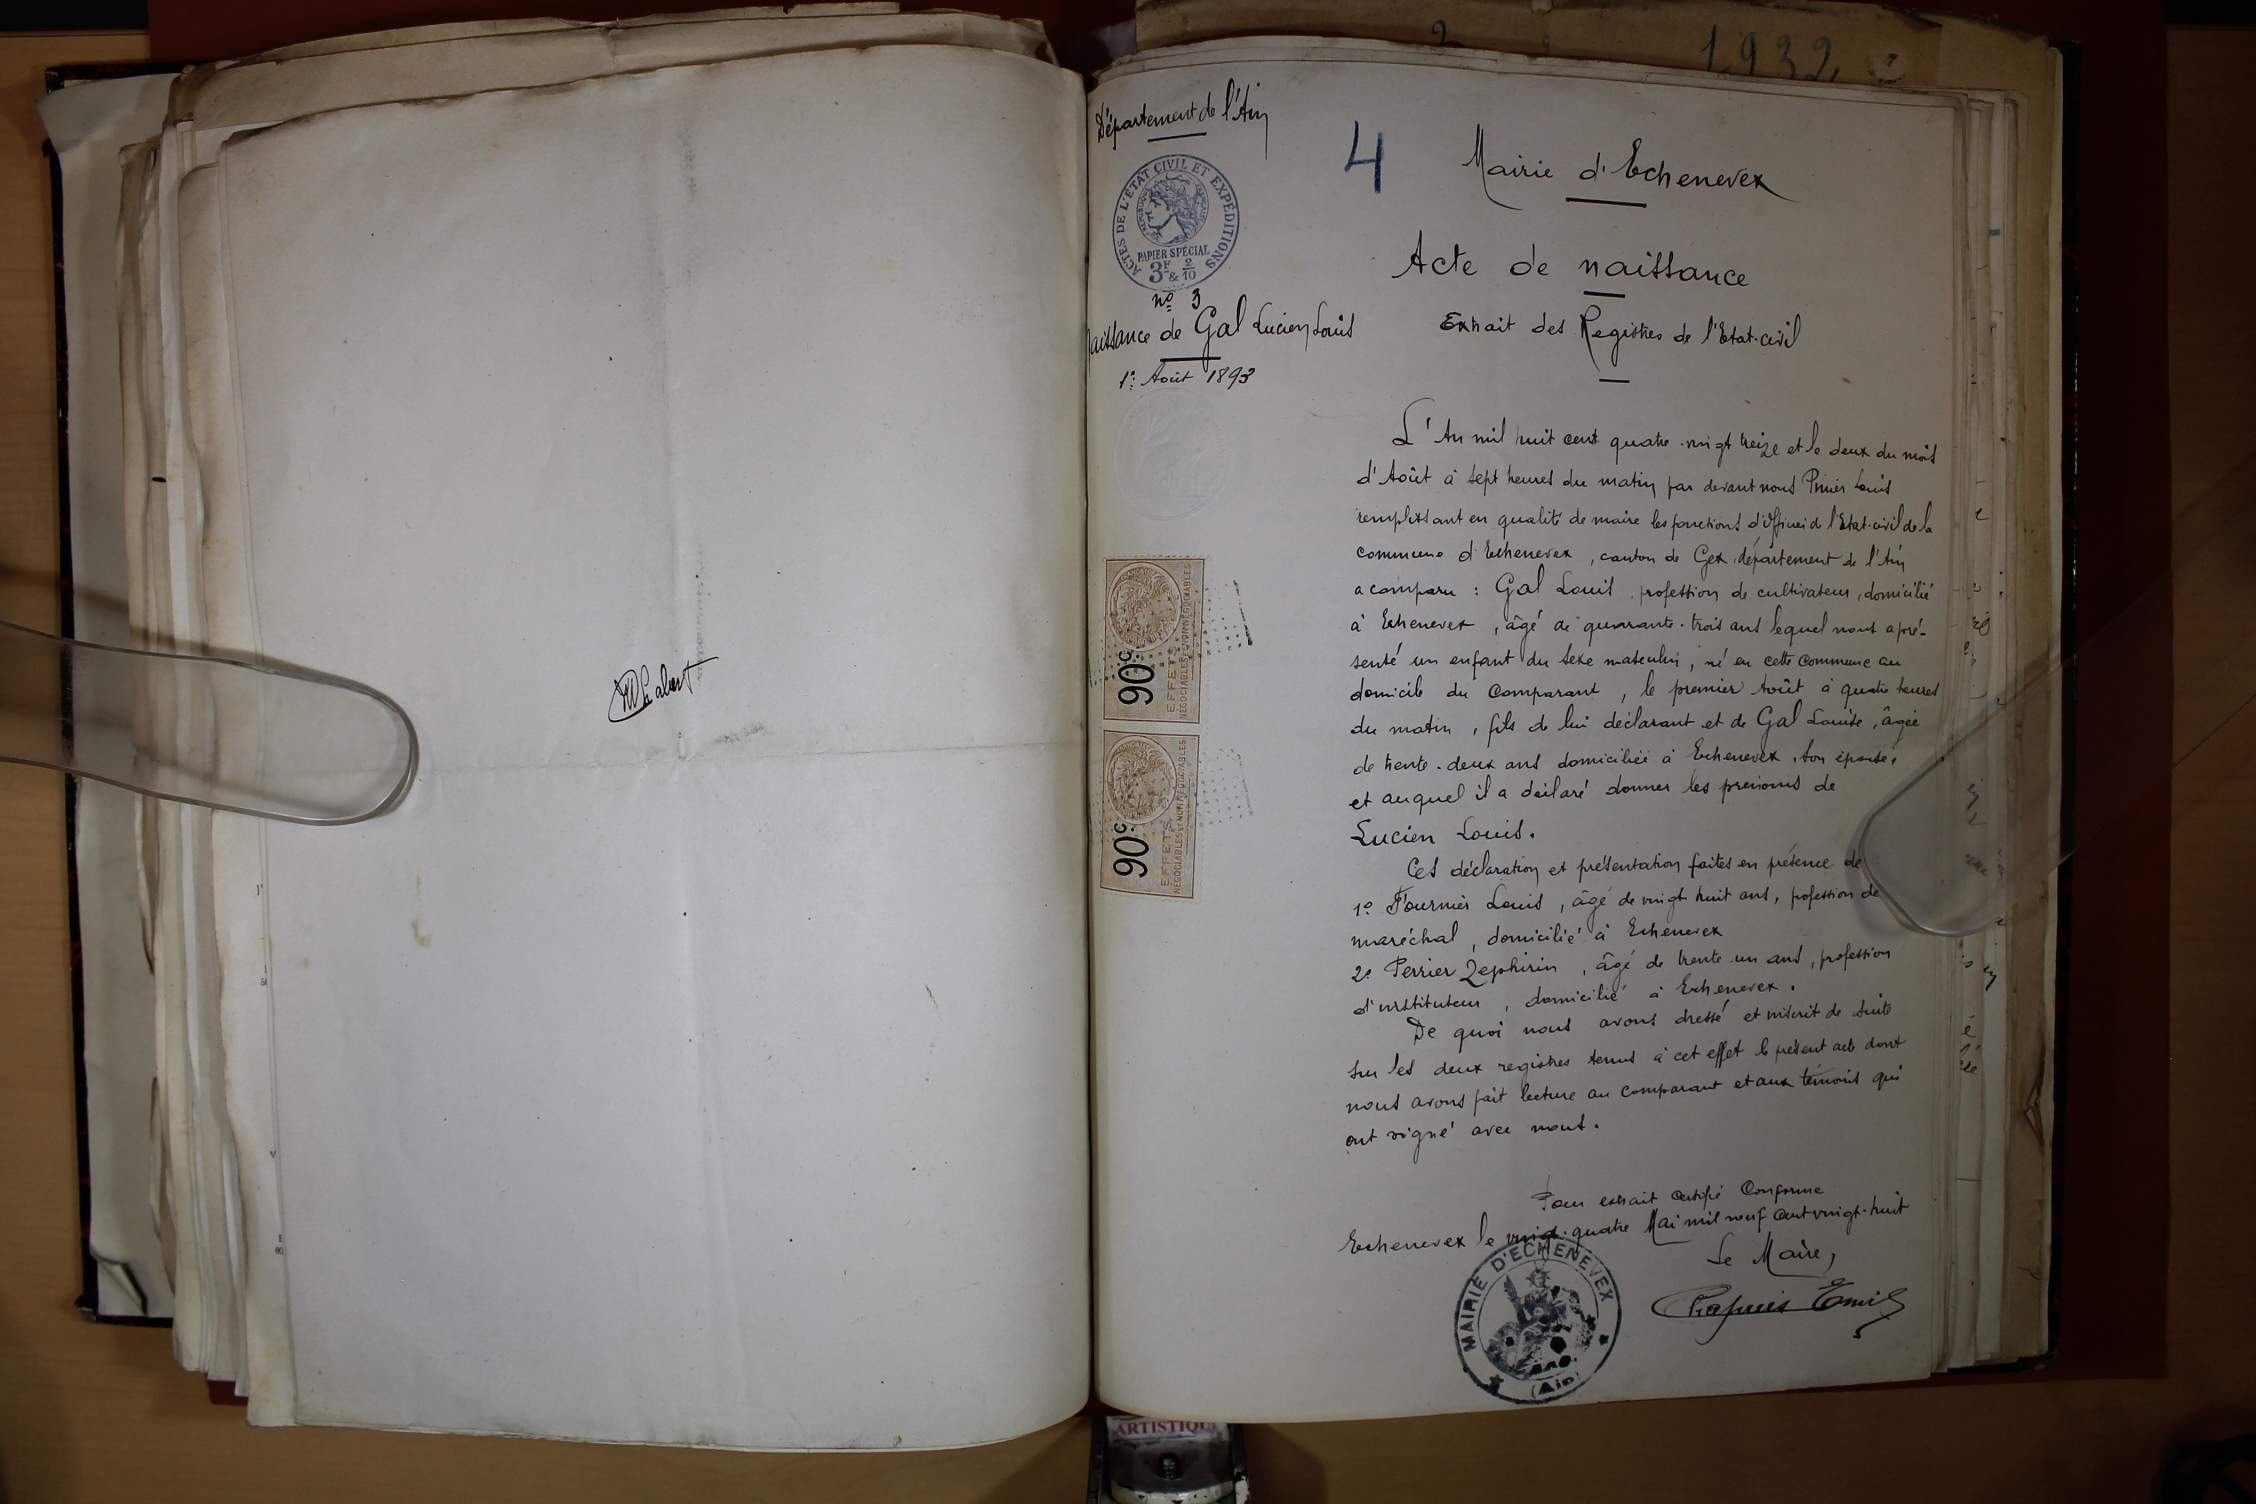 1932
Département de l'Ain
4
Mairie d'Echenevex
ACTES DE L'ÉTAT CIVIL ET EXPÉDITIONS
PAPIER SPÉCIAL
3F & 2/10
Acte de naissance
nº 3
naissance de Gal Lucien Louis
Extrait des Registres de l'Etat-civil
1er Août 1893
L'An mil huit cent quatre-vingt treize et le deux du mois
d'Août à sept heures du matin par devant nous Prinier Louis
remplissant en qualité de maire les fonctions d'officier de l'Etat-civil de la
commune d'Echenevex, canton de Gex, département de l'Ain
a comparu : Gal Louis, profession de cultivateur, domicilié
à Echenevex, âgé de quarante-trois ans lequel nous a pré-
senté un enfant du sexe masculin, né en cette commune au
domicile du comparant, le premier Août à quatre heures
du matin, fils de lui déclarant et de Gal Louise, âgée
de trente-deux ans domiciliée à Echenevex, son épouse,
et auquel il a déclaré donner les prénoms de
Lucien Louis.
Ces déclaration et présentation faites en présence de
1º Fournier Louis, âgé de vingt huit ans, profession de
maréchal, domicilié à Echenevex
2º Perrier Zephirin, âgé de trente un ans, profession
d'instituteur, domicilié à Echenevex.
De quoi nous avons dressé et inscrit de suite
sur les deux registres tenus à cet effet le présent acte dont
nous avons fait lecture au comparant et aux témoins qui
ont signé avec nous.
Pour extrait certifié conforme
Echenevex le vingt-quatre Mai mil neuf cent vingt-huit
Le Maire,
Chapuis Emile
MAIRIE D'ECHENEVEX
(Ain)
90c
EFFETS
NÉGOCIABLES ET NON NÉGOCIABLES
90c
EFFETS
NÉGOCIABLES ET NON NÉGOCIABLES
ARTISTIQUE